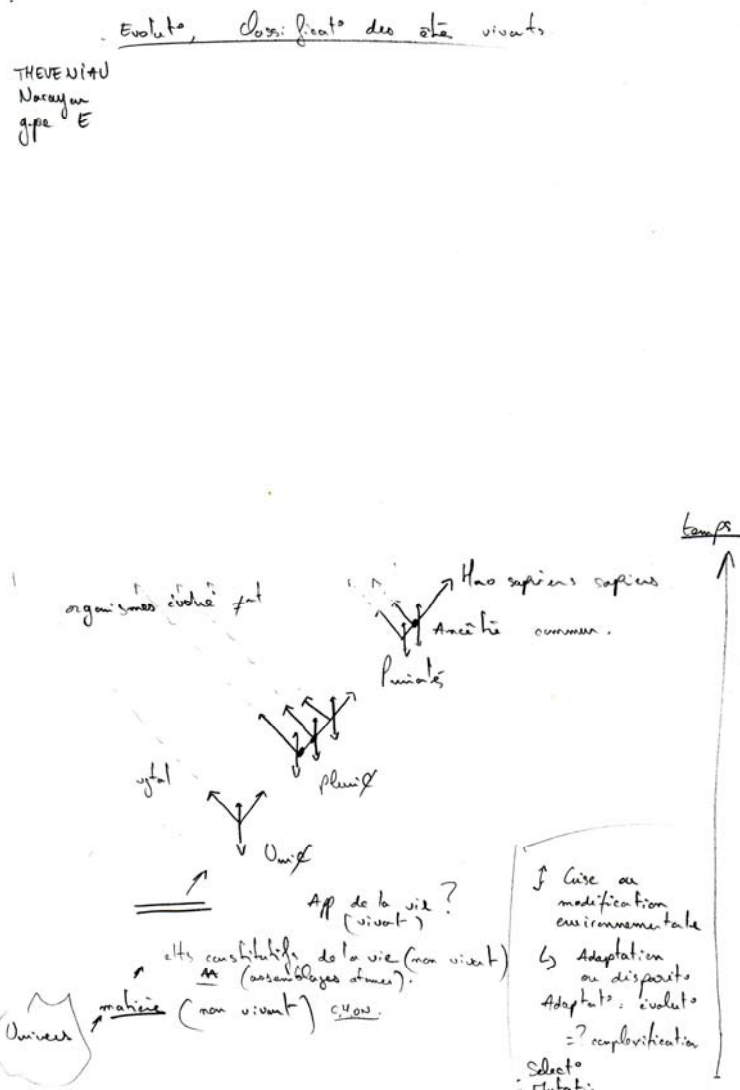 Evolut°, Classificat° des êtres vivants
THEVENIAU
Narayan
gpe E
temps
Homo sapiens sapiens
organismes évolué ≠nt
Ancêtre commun.
Primates
vgtal
pluriȼ
Uniȼ
App de la vie ?
(vivant)
elts constitutifs de la vie (non vivant)
AA (assemblages atomes).
matière (non vivant) C,H,O,N.
Univers
Crise ou
modification
environnementale
↳ Adaptation
ou disparit°
Adaptat° : évolut°
=? complexification
Select°
Mutat°